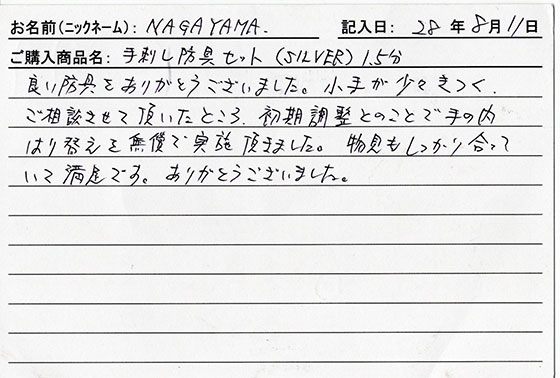 お名前(ニックネーム): NAGAYAMA. 記入日: 28 年 8月 11日
ご購入商品名: 手刺し防具セット (SILVER) 1.5分
良い防具をありがとうございました。小手が少々きつく、
ご相談させて頂いたところ、初期調整とのことで手の内
はり替えを無償で実施頂きました。物見もしっかり合って
いて満足です。ありがとうございました。